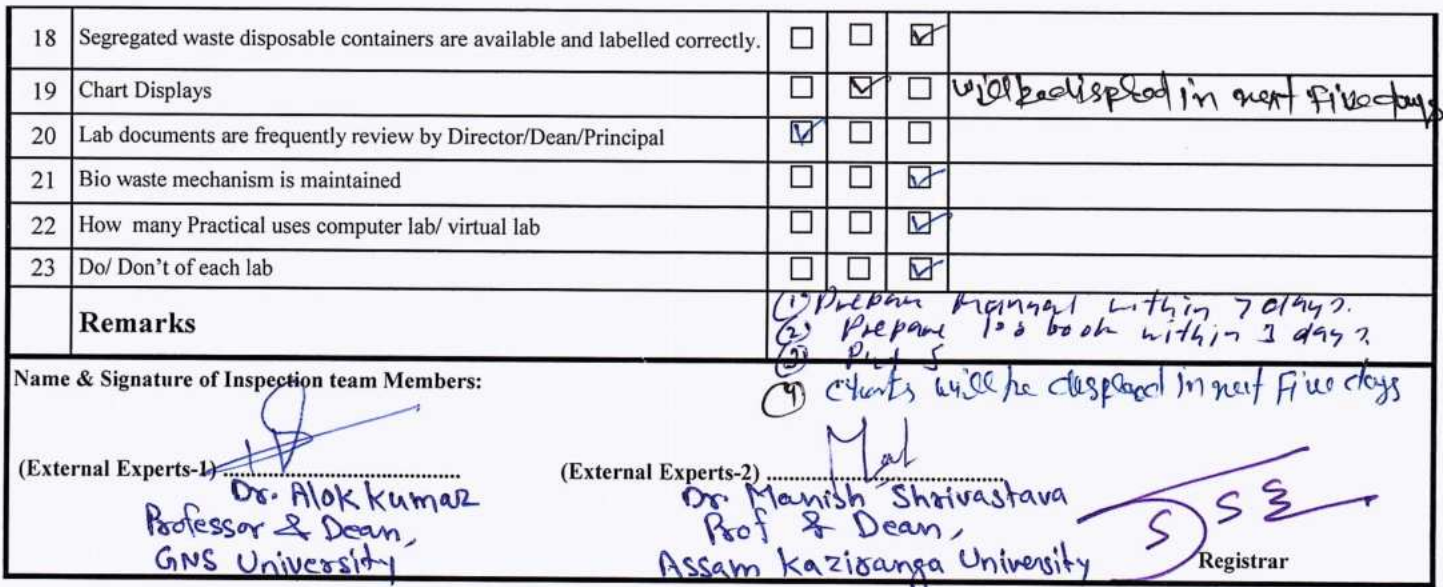 18 Segregated waste disposable containers are available and labelled correctly. ☐ ☐ ☑
19 Chart Displays ☐ ☑ ☐ will be displed in next Five days
20 Lab documents are frequently review by Director/Dean/Principal ☑ ☐ ☐
21 Bio waste mechanism is maintained ☐ ☐ ☑
22 How many Practical uses computer lab/ virtual lab ☐ ☐ ☑
23 Do/ Don't of each lab ☐ ☐ ☑
Remarks
(1) Prepare Mannal within 7 days.
(2) Prepare book within 3 days
(3)
(4) Charts will be in next Five days
Name & Signature of Inspection team Members:
(External Experts-1) ........................................
Dr. Alok kumar
Professor & Dean,
GNS University
(External Experts-2) ........................................
Dr. Manish Shrivastava
Prof & Dean,
Assam Kaziranga University
Registrar